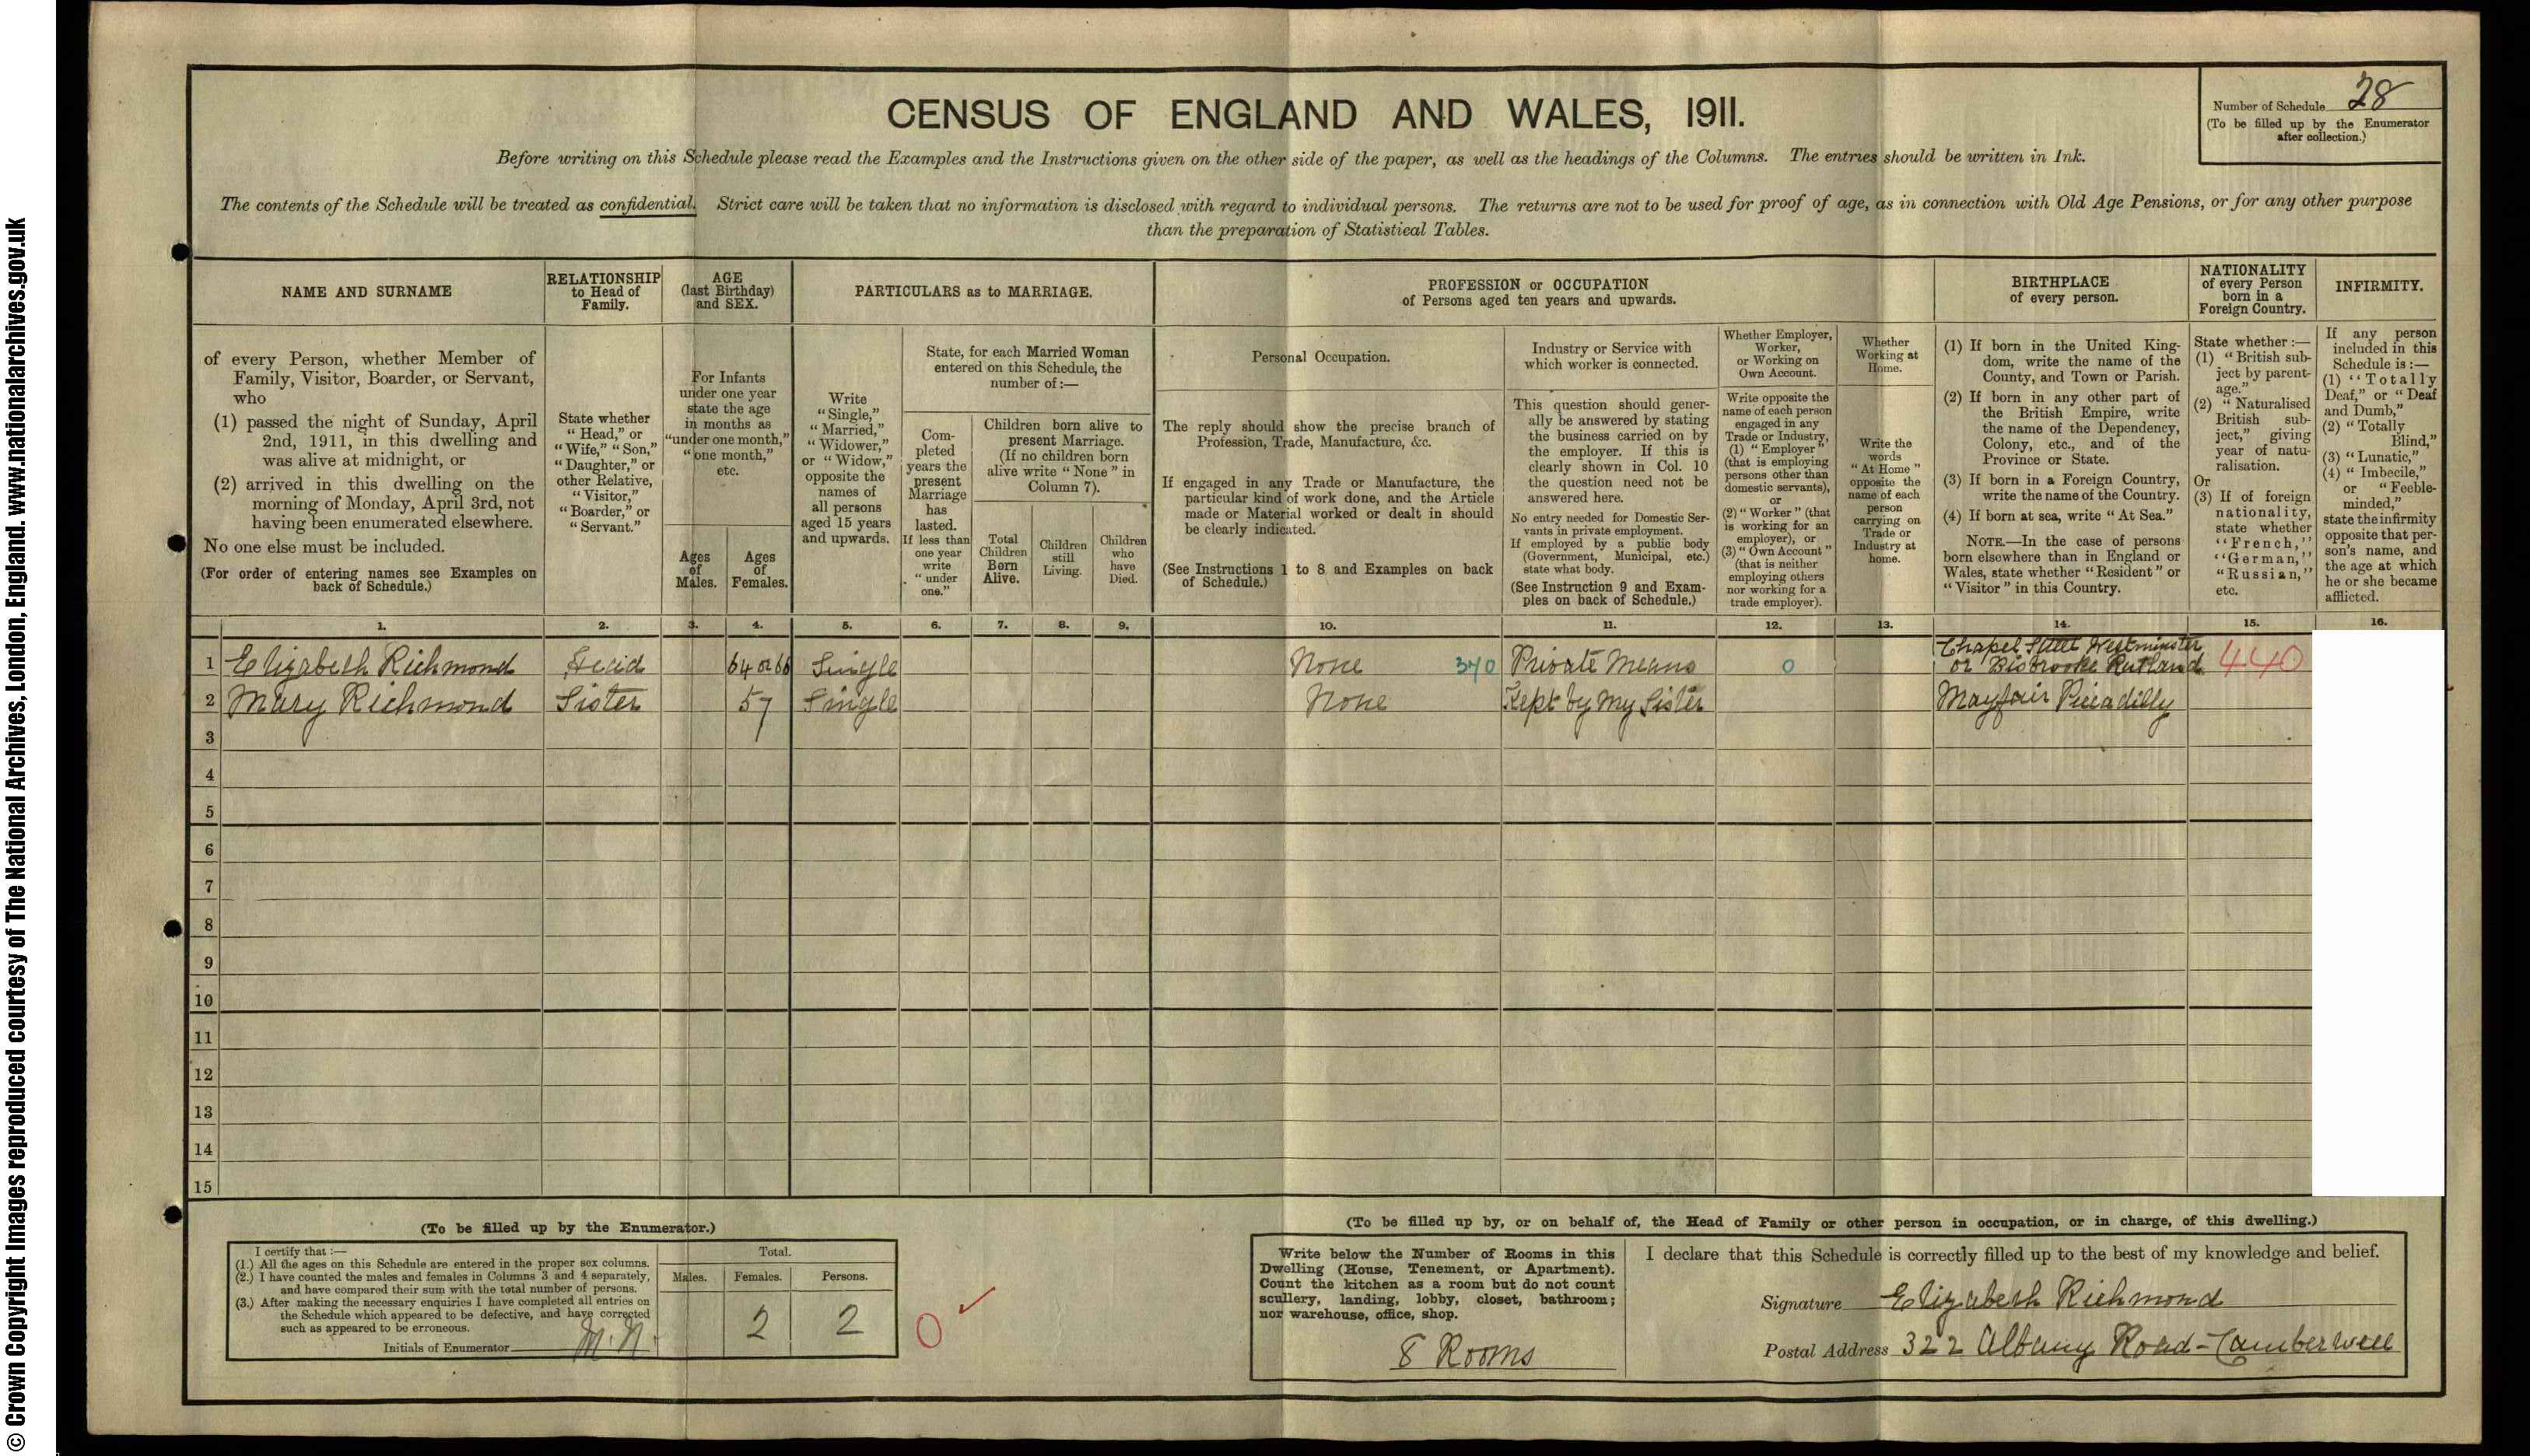 © Crown Copyright Images reproduced courtesy of The National Archives, London, England. www.nationalarchives.gov.uk
CENSUS OF ENGLAND AND WALES, 1911.
Number of Schedule 28
(To be filled up by the Enumerator
after collection.)
Before writing on this Schedule please read the Examples and the Instructions given on the other side of the paper, as well as the headings of the Columns. The entries should be written in Ink.
The contents of the Schedule will be treated as confidential. Strict care will be taken that no information is disclosed with regard to individual persons. The returns are not to be used for proof of age, as in connection with Old Age Pensions, or for any other purpose
than the preparation of Statistical Tables.
NAME AND SURNAME
of every Person, whether Member of
Family, Visitor, Boarder, or Servant,
who
(1) passed the night of Sunday, April
2nd, 1911, in this dwelling and
was alive at midnight, or
(2) arrived in this dwelling on the
morning of Monday, April 3rd, not
having been enumerated elsewhere.
No one else must be included.
(For order of entering names see Examples on
back of Schedule.)
RELATIONSHIP
to Head of
Family.
State whether
"Head," or
"Wife," "Son,"
"Daughter," or
other Relative,
"Visitor,"
"Boarder," or
"Servant."
AGE
(last Birthday)
and SEX.
For Infants
under one year
state the age
in months as
"under one month,"
"one month,"
etc.
Ages
of
Males.
Ages
of
Females.
PARTICULARS as to MARRIAGE.
Write
"Single,"
"Married,"
"Widower,"
or "Widow,"
opposite the
names of
all persons
aged 15 years
and upwards.
State, for each Married Woman
entered on this Schedule, the
number of:—
Com-
pleted
years the
present
Marriage
has
lasted.
If less than
one year
write
"under
one."
Children born alive to
present Marriage.
(If no children born
alive write "None" in
Column 7).
Total
Children
Born
Alive.
Children
still
Living.
Children
who
have
Died.
PROFESSION or OCCUPATION
of Persons aged ten years and upwards.
Personal Occupation.
The reply should show the precise branch of
Profession, Trade, Manufacture, &c.
If engaged in any Trade or Manufacture, the
particular kind of work done, and the Article
made or Material worked or dealt in should
be clearly indicated.
(See Instructions 1 to 8 and Examples on back
of Schedule.)
Industry or Service with
which worker is connected.
This question should gener-
ally be answered by stating
the business carried on by
the employer. If this is
clearly shown in Col. 10
the question need not be
answered here.
No entry needed for Domestic Ser-
vants in private employment.
If employed by a public body
(Government, Municipal, etc.)
state what body.
(See Instruction 9 and Exam-
ples on back of Schedule.)
Whether Employer,
Worker,
or Working on
Own Account.
Write opposite the
name of each person
engaged in any
Trade or Industry,
(1) "Employer"
(that is employing
persons other than
domestic servants),
or
(2) "Worker" (that
is working for an
employer), or
(3) "Own Account"
(that is neither
employing others
nor working for a
trade employer).
Whether
Working at
Home.
Write the
words
"At Home"
opposite the
name of each
person
carrying on
Trade or
Industry at
home.
BIRTHPLACE
of every person.
(1) If born in the United King-
dom, write the name of the
County, and Town or Parish.
(2) If born in any other part of
the British Empire, write
the name of the Dependency,
Colony, etc., and of the
Province or State.
(3) If born in a Foreign Country,
write the name of the Country.
(4) If born at sea, write "At Sea."
NOTE.—In the case of persons
born elsewhere than in England or
Wales, state whether "Resident" or
"Visitor" in this Country.
NATIONALITY
of every Person
born in a
Foreign Country.
State whether:—
(1) "British sub-
ject by parent-
age."
(2) "Naturalised
British sub-
ject," giving
year of natu-
ralisation.
Or
(3) If of foreign
nationality,
state whether
"French,"
"German,"
"Russian,"
etc.
INFIRMITY.
If any person
included in this
Schedule is:—
(1) "Totally
Deaf," or "Deaf
and Dumb,"
(2) "Totally
Blind,"
(3) "Lunatic,"
(4) "Imbecile,"
or "Feeble-
minded,"
state the infirmity
opposite that per-
son's name, and
the age at which
he or she became
afflicted.
1. 2. 3. 4. 5. 6. 7. 8. 9. 10. 11. 12. 13. 14. 15. 16.
Chapel Street Westminster
1 Elizabeth Richmond Head 64 or 66 Single None 370 Private Means 0 or Bisbrooke Rutland 440
2 Mary Richmond Sister 57 Single None Kept by my Sister Mayfair Piccadilly
3
4
5
6
7
8
9
10
11
12
13
14
15
(To be filled up by the Enumerator.)
I certify that:—
(1.) All the ages on this Schedule are entered in the proper sex columns.
(2.) I have counted the males and females in Columns 3 and 4 separately,
and have compared their sum with the total number of persons.
(3.) After making the necessary enquiries I have completed all entries on
the Schedule which appeared to be defective, and have corrected
such as appeared to be erroneous.
Initials of Enumerator
Total.
Males. Females. Persons.
2 2
0
(To be filled up by, or on behalf of, the Head of Family or other person in occupation, or in charge, of this dwelling.)
Write below the Number of Rooms in this
Dwelling (House, Tenement, or Apartment).
Count the kitchen as a room but do not count
scullery, landing, lobby, closet, bathroom;
nor warehouse, office, shop.
8 Rooms
I declare that this Schedule is correctly filled up to the best of my knowledge and belief.
Signature Elizabeth Richmond
Postal Address 322 Albany Road - Camberwell